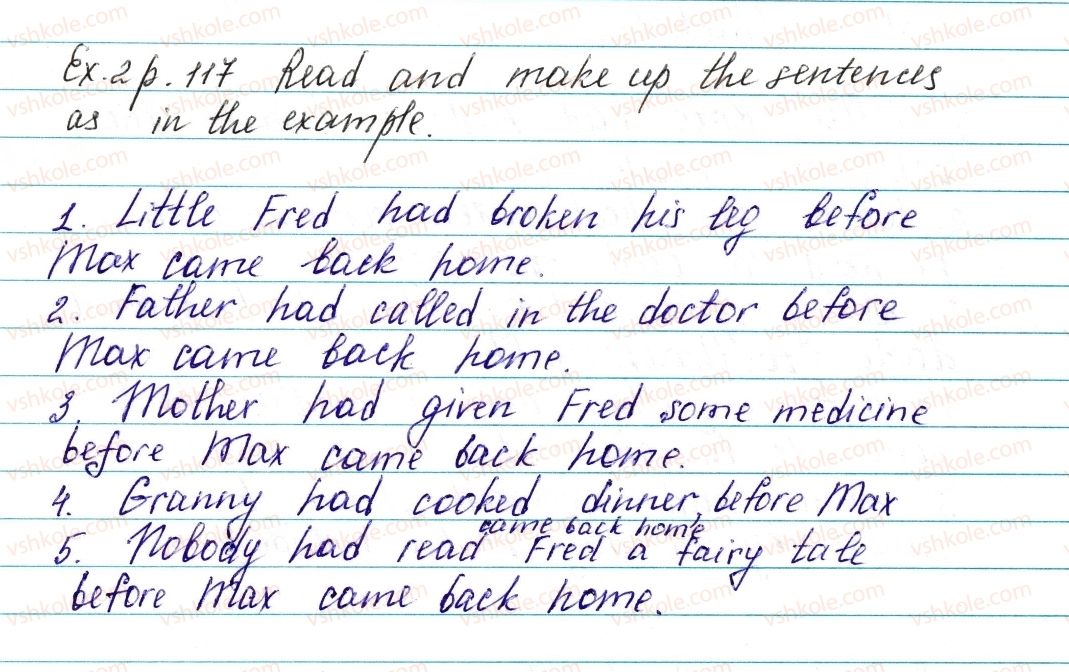 Ex. 2 p. 117 Read and make up the sentences
as in the example.
1. Little Fred had broken his leg before
Max came back home.
2. Father had called in the doctor before
Max came back home.
3. Mother had given Fred some medicine
before Max came back home.
4. Granny had cooked dinner before Max
came back home
5. Nobody had read Fred a fairy tale
before Max came back home.
vshkole.com